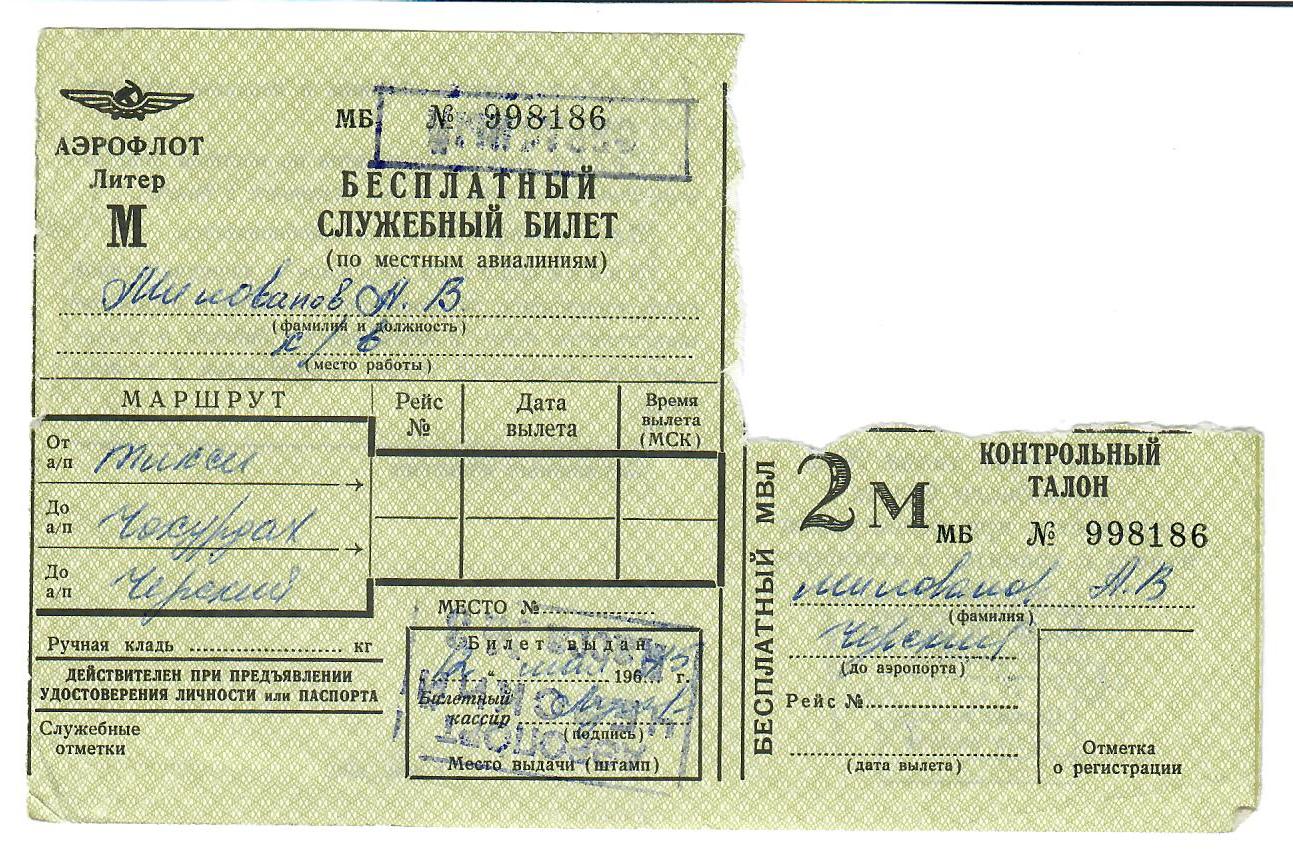 МБ № 998186
АЭРОФЛОТ
Литер
М
БЕСПЛАТНЫЙ
СЛУЖЕБНЫЙ БИЛЕТ
(по местным авиалиниям)
Милованов А. В.
(фамилия и должность)
х/в
(место работы)
МАРШРУТ
Рейс №
Дата вылета
Время вылета (МСК)
От а/п Тикси
До а/п Чокурдах
До а/п Черский
МЕСТО №
Ручная кладь кг
ДЕЙСТВИТЕЛЕН ПРИ ПРЕДЪЯВЛЕНИИ
УДОСТОВЕРЕНИЯ ЛИЧНОСТИ или ПАСПОРТА
Служебные
отметки
Билет выдан
" 196 г.
Билетный
кассир
(подпись)
Место выдачи (штамп)
БЕСПЛАТНЫЙ МВЛ
2М
КОНТРОЛЬНЫЙ
ТАЛОН
МБ № 998186
Милованов А.В
(фамилия)
Черский
(до аэропорта)
Рейс №
(дата вылета)
Отметка
о регистрации